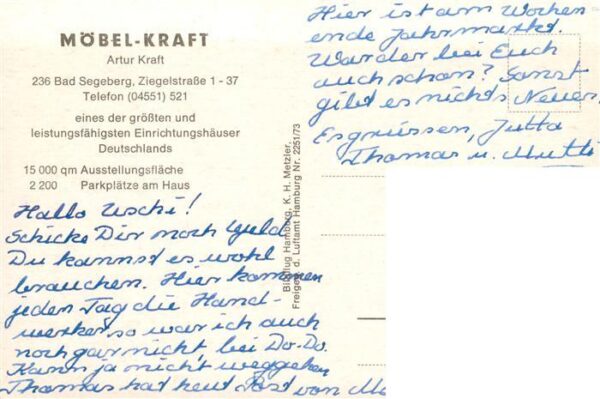 MÖBEL-KRAFT
Artur Kraft
236 Bad Segeberg, Ziegelstraße 1 - 37
Telefon (04551) 521
eines der größten und
leistungsfähigsten Einrichtungshäuser
Deutschlands
15 000 qm Ausstellungsfläche
2 200 Parkplätze am Haus
Hallo Uschi!
Schicke Dir noch Geld
Du kannst es wohl
brauchen. Hier kommen
jeden Tag die Hand-
werker, so war ich auch
noch gar nicht, bei Do-Do.
Kann ja nicht weggehen
Thomas hat heut Post von
Bildflug Hamburg, K. H. Metzler,
Freigegeb. d. Luftamt Hamburg Nr. 2251/73
Hier ist am Wochen
ende Jahrmarkt.
War der bei Euch
auch schon? Sonst
gibt es nichts Neues.
Es grüssen, Jutta
Thomas u. Mutti